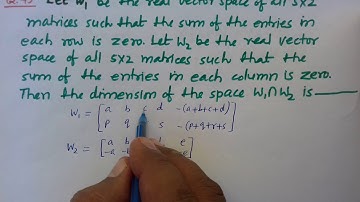 Let W₁ be the real vector space of all 5x2
matrices such that the sum of the entries in
each row is zero. Let W₂ be the real vector
space of all 5x2 matrices such that the
sum of the entries in each column is zero.
Then the dimension of the space W₁∩W₂ is
W₁ = [ a b c d -(a+b+c+d)
p q s -(p+q+r+s) ]
W₂ = [ a b d e
-a ]